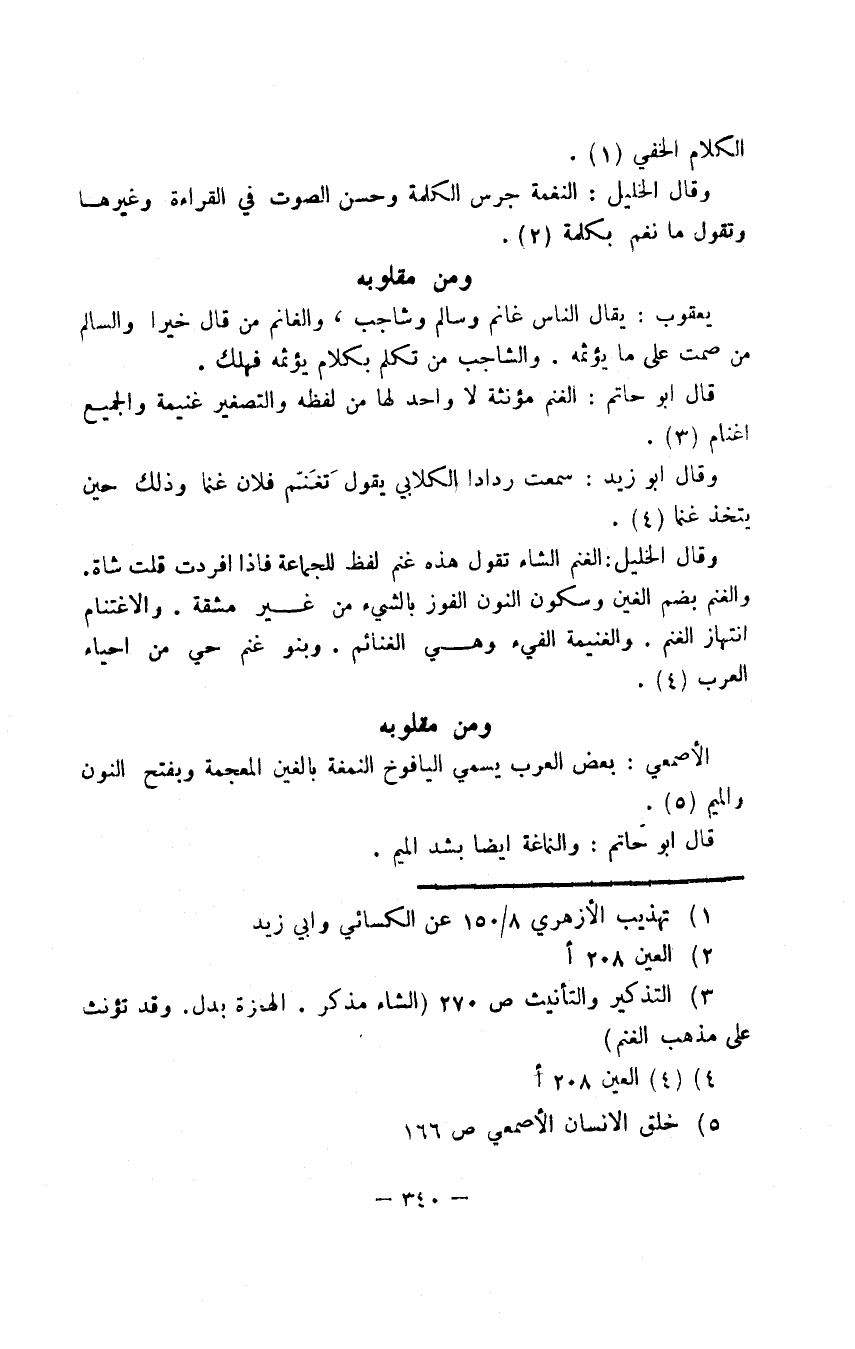 الكلام الخفي (١) .
وقال الخليل : النغمة جرس الكلمة وحسن الصوت في القراءة وغيرهـا
وتقول ما نغم بكلمة (٢) .
ومن مقلوبه
يعقوب : يقال الناس غانم وسالم وشاجب ، والغانم من قال خيرا والسالم
من صمت على ما يؤثمه . والشاجب من تكلم بكلام يؤثمه فهلك .
قال ابو حاتم : الغنم مؤنثة لا واحد لها من لفظه والتصغير غنيمة والجميع
اغنام (٣) .
وقال ابو زيد : سمعت ردادا الكلابي يقول تَغَنّم فلان غنما وذلك حين
يتخذ غنما (٤) .
وقال الخليل:الغنم الشاء تقول هذه غنم لفظ للجماعة فاذا افردت قلت شاة.
والغنم بضم الغين وسكون النون الفوز بالشيء من غـــير مشقة . والاغتنام
انتهاز الغنم . والغنيمة الفيء وهـــي الغنائم . وبنو غنم حي من احياء
العرب (٤) .
ومن مقلوبه
الأصمعي : بعض العرب يسمي اليافوخ النمغة بالغين المعجمة وبفتح النون
والميم (٥) .
قال ابو حَاتم : والنماغة ايضا بشد الميم .
١) تهذيب الأزهري ٨/١٥٠ عن الكسائي وابي زيد
٢) العين ٢٠٨ أ
٣) التذكير والتأنيث ص ٢٧٠ (الشاء مذكر . الهمزة بدل. وقد تؤنث
على مذهب الغنم)
٤) (٤) العين ٢٠٨ أ
٥) خلق الانسان الأصمعي ص ١٦٦
– ٣٤٠ –